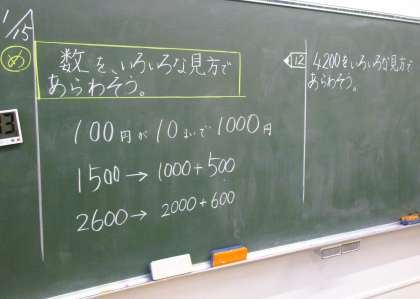 1/15
め
数を、いろいろな見方で
あらわそう。
100円が10まいで1000円
1500→1000+500
2600→2000+600
12
4200をいろいろな見方で
あらわそう。